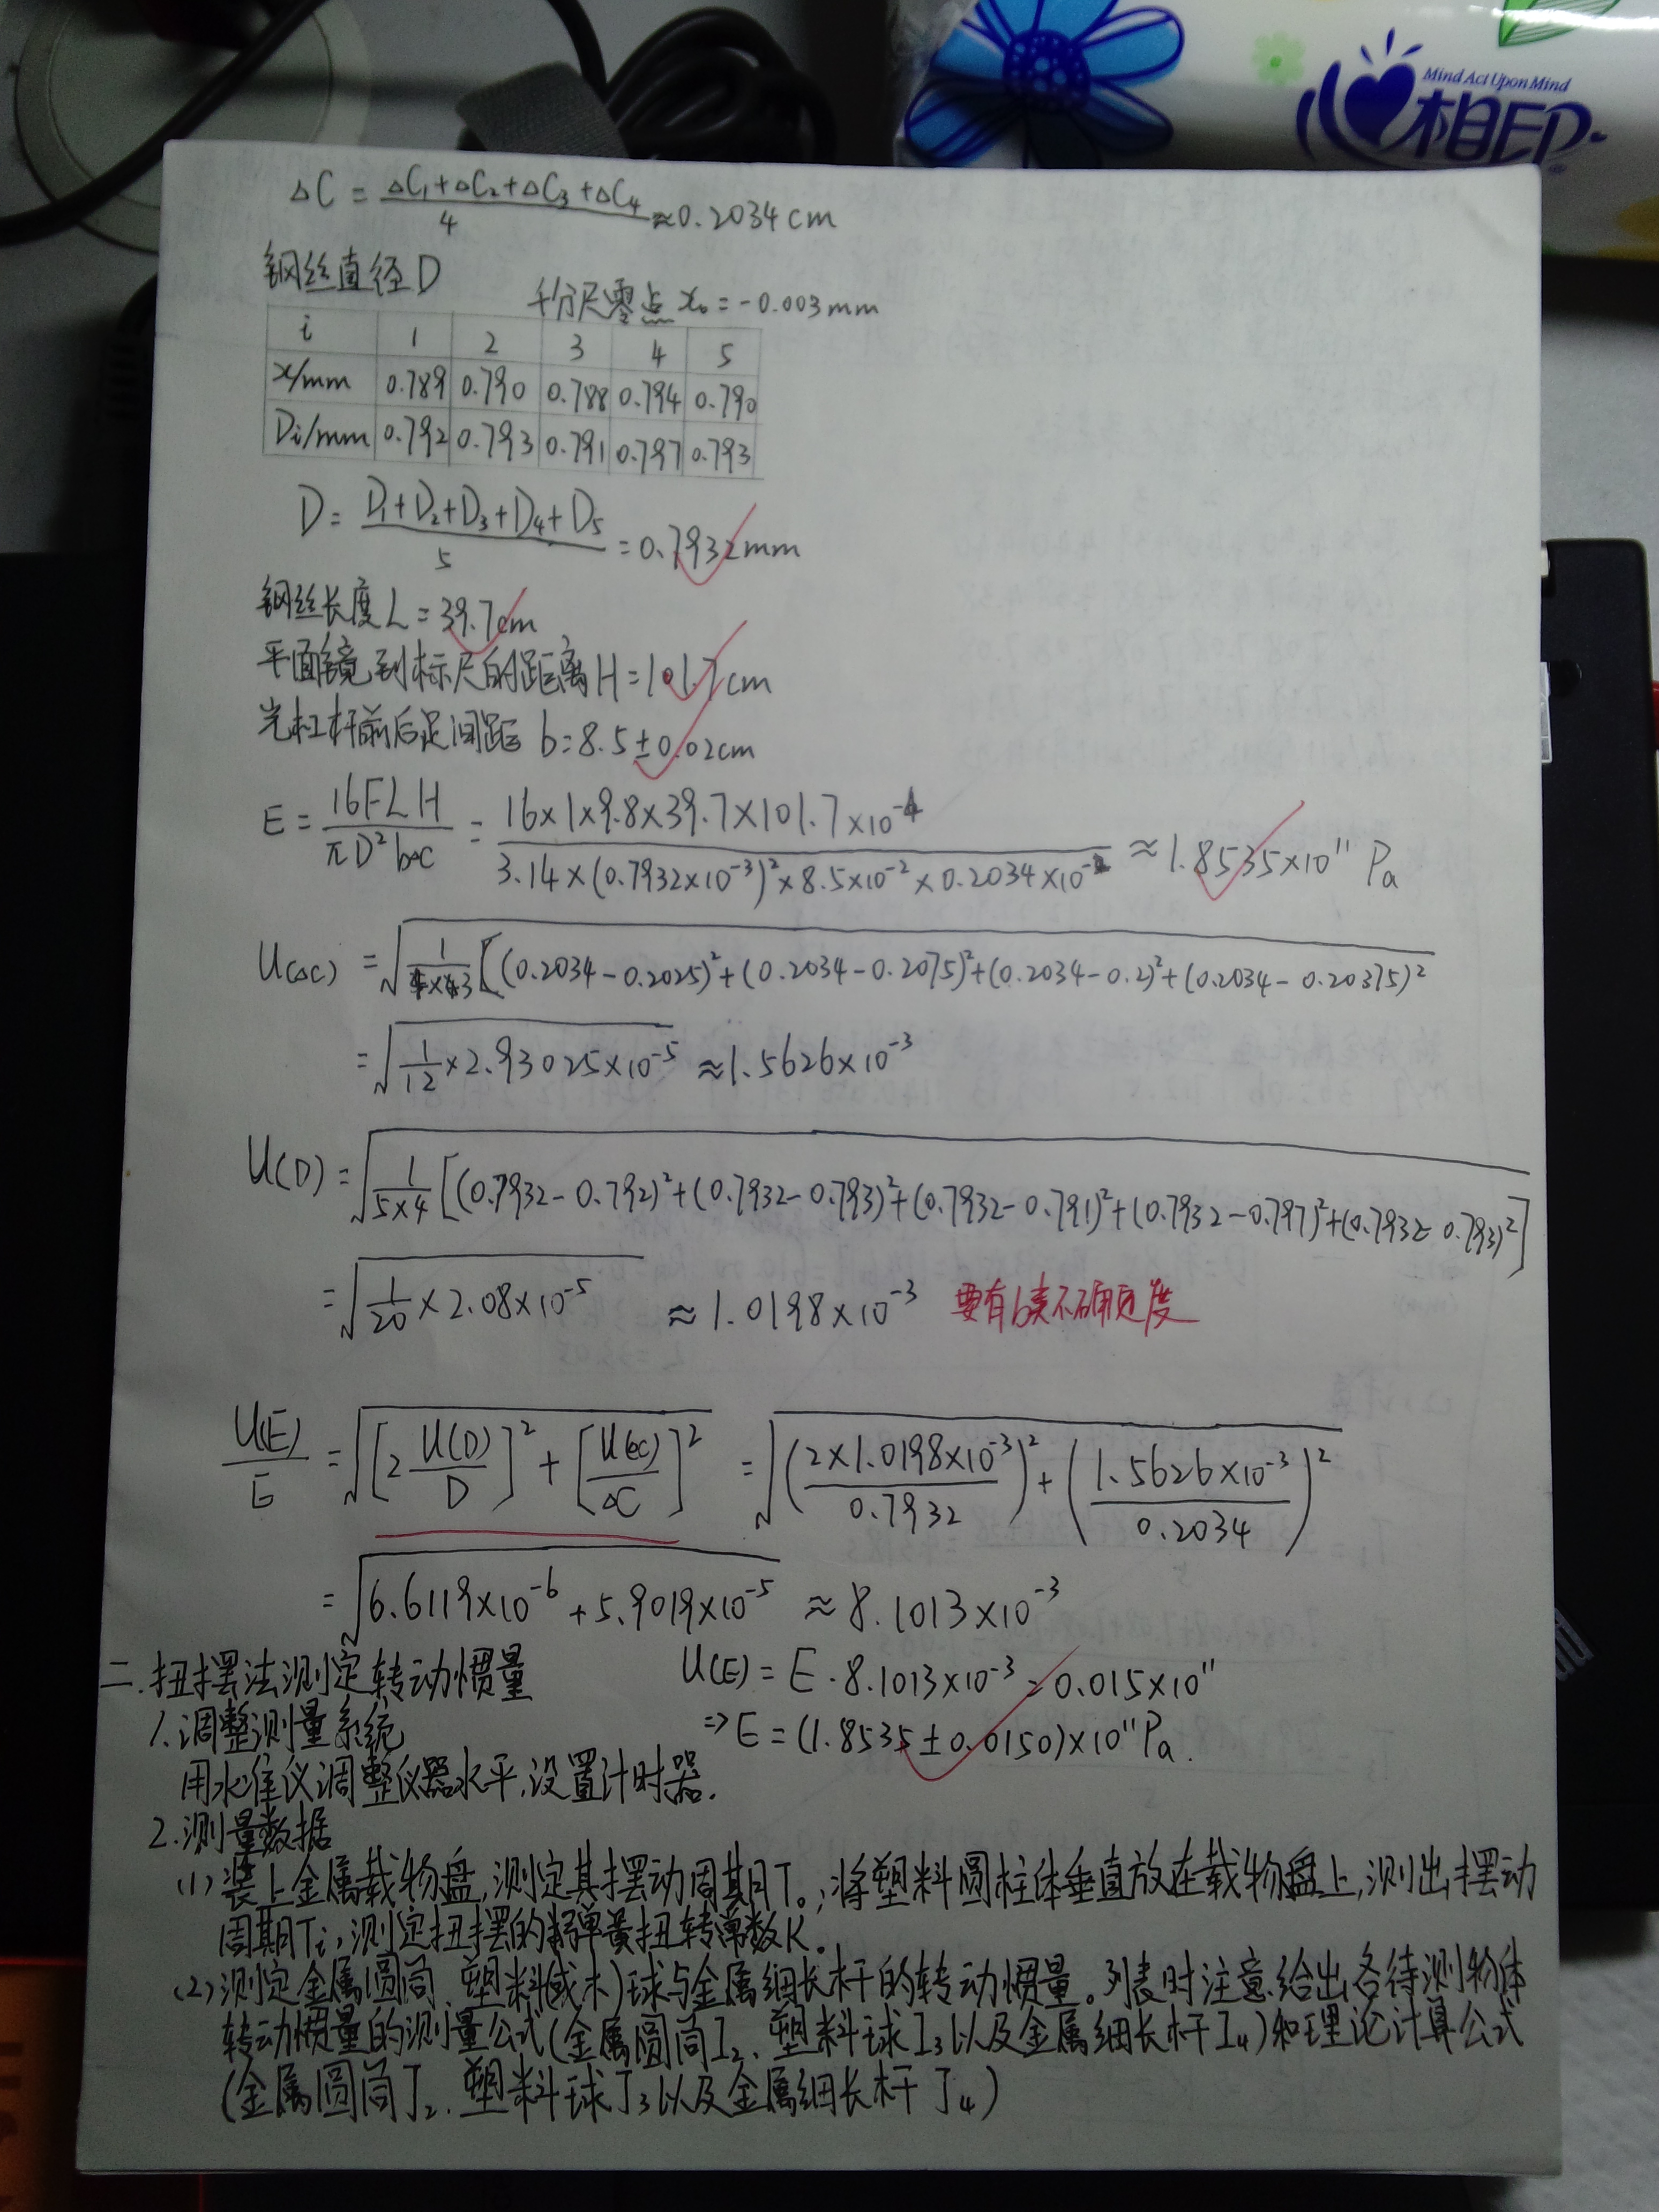 Mind Act Upon Mind
心相印
ΔC = (ΔC₁+ΔC₂+ΔC₃+ΔC₄)/4 ≈ 0.2034cm
钢丝直径D
千分尺零点 x₀ = -0.003mm
i 1 2 3 4 5
x/mm 0.789 0.790 0.788 0.794 0.790
Di/mm 0.792 0.793 0.791 0.797 0.793
D = (D₁+D₂+D₃+D₄+D₅)/5 = 0.7932mm
钢丝长度L = 39.7cm
平面镜到标尺的距离H = 101.7cm
光杠杆前后足间距 b = 8.5±0.02cm
E = 16FLH/(πD²bΔC) = (16×1×9.8×39.7×101.7×10⁻⁴)/(3.14×(0.7932×10⁻³)²×8.5×10⁻²×0.2034×10⁻²) ≈ 1.8535×10¹¹ Pa
U(ΔC) = √(1/(4×3)[(0.2034-0.2025)²+(0.2034-0.2075)²+(0.2034-0.2)²+(0.2034-0.20375)²
= √(1/12×2.93025×10⁻⁵) ≈ 1.5626×10⁻³
U(D) = √(1/(5×4)[(0.7932-0.792)²+(0.7932-0.793)²+(0.7932-0.791)²+(0.7932-0.797)²+(0.7932-0.793)²])
= √(1/20×2.08×10⁻⁵) ≈ 1.0198×10⁻³ 要有b类不确定度
U(E)/E = √([2U(D)/D]²+[U(ΔC)/ΔC]²) = √((2×1.0198×10⁻³/0.7932)²+(1.5626×10⁻³/0.2034)²)
= √(6.6119×10⁻⁶+5.9019×10⁻⁵) ≈ 8.1013×10⁻³
U(E) = E·8.1013×10⁻³ = 0.015×10¹¹
⇒ E = (1.8535±0.0150)×10¹¹Pa.
二.扭摆法测定转动惯量
1.调整测量系统
用水准仪调整仪器水平,设置计时器.
2.测量数据
(1)装上金属载物盘,测定其摆动周期T₀;将塑料圆柱体垂直放在载物盘上,测出摆动
周期T₁,测定扭摆的弹簧扭转常数K。
(2)测定金属圆筒、塑料(或木)球与金属细长杆的转动惯量。列表时注意给出各待测物体
转动惯量的测量公式(金属圆筒I₂、塑料球I₃以及金属细长杆I₄)和理论计算公式
(金属圆筒J₂、塑料球J₃以及金属细长杆J₄)